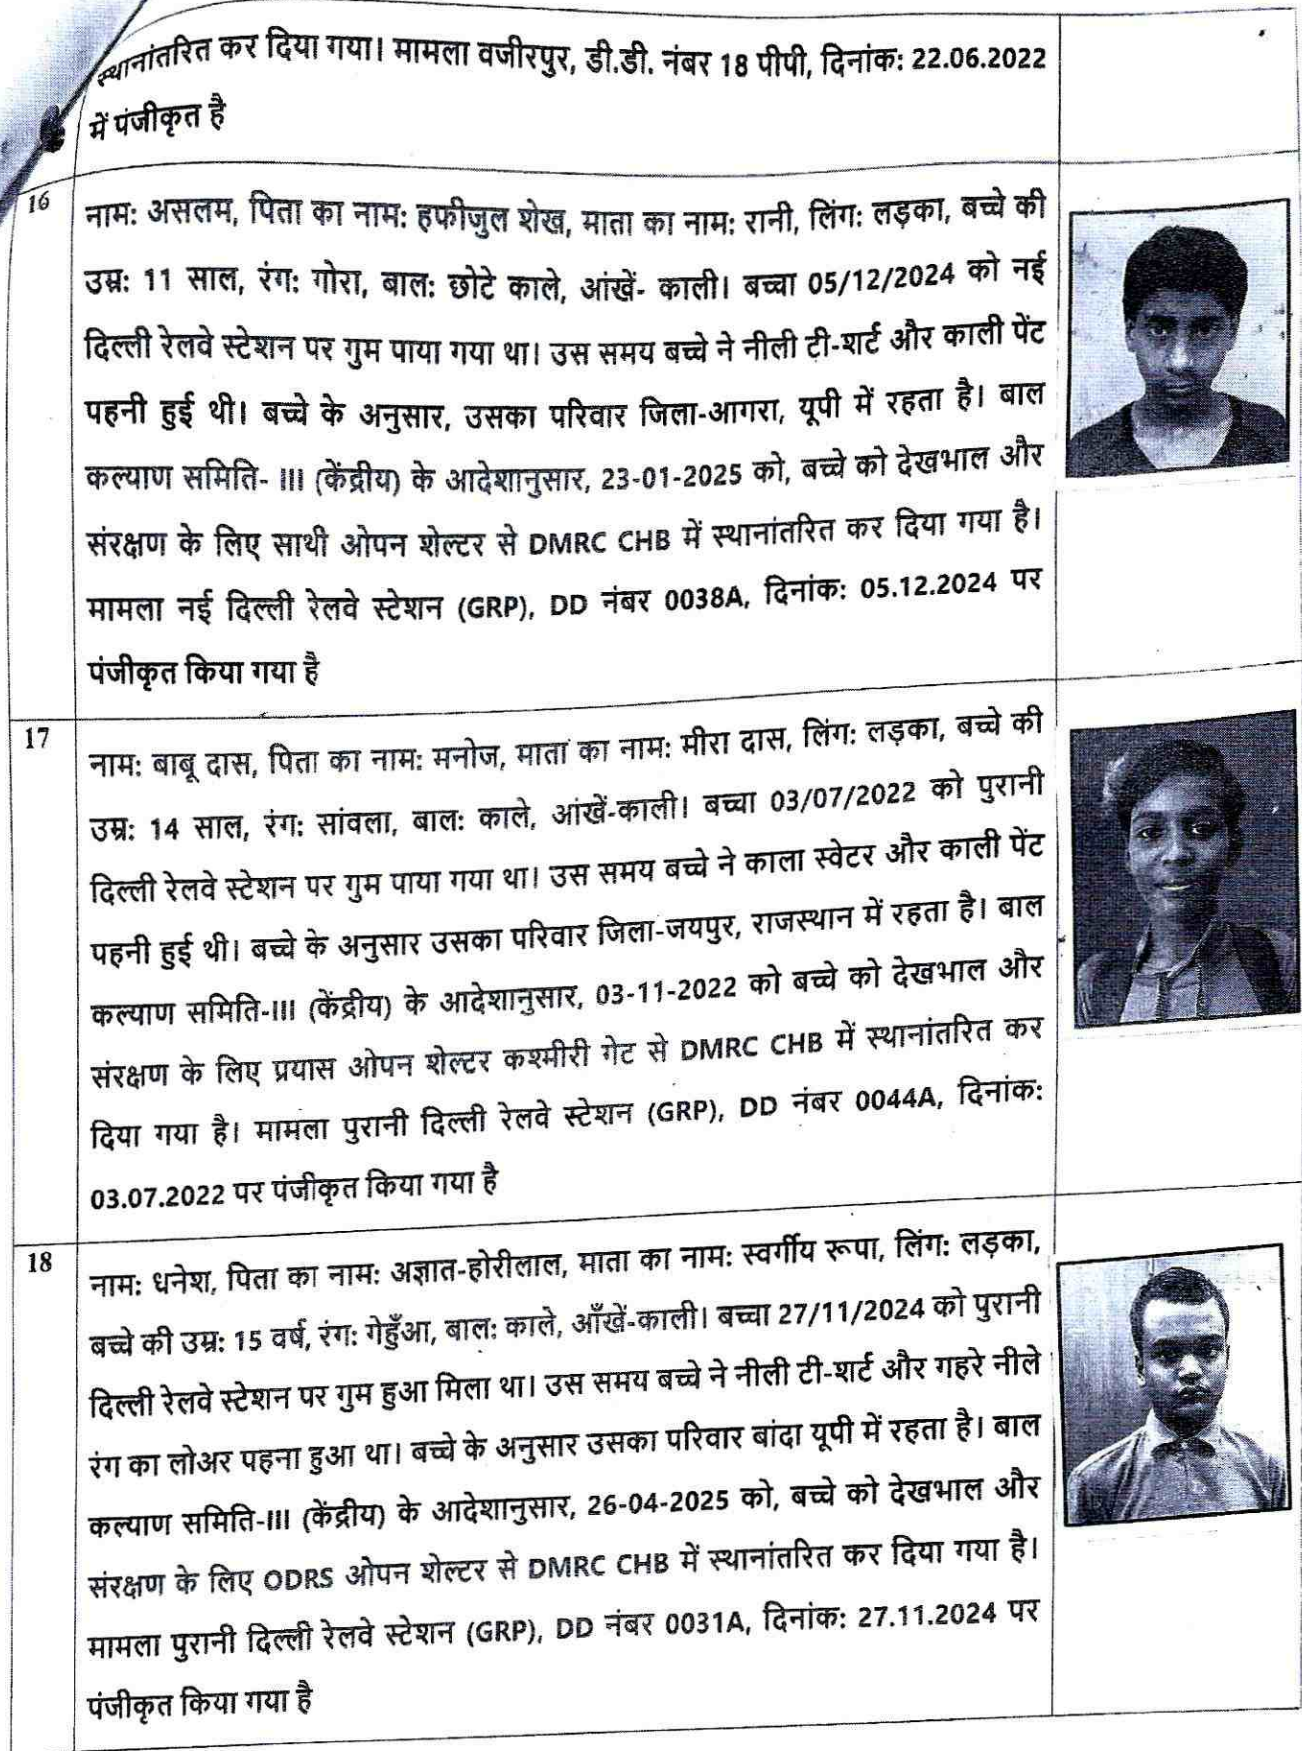 स्थानांतरित कर दिया गया। मामला वजीरपुर, डी.डी. नंबर 18 पीपी, दिनांक: 22.06.2022
में पंजीकृत है
16
नाम: असलम, पिता का नाम: हफीजुल शेख, माता का नाम: रानी, लिंग: लड़का, बच्चे की
उम्र: 11 साल, रंग: गोरा, बाल: छोटे काले, आंखें- काली। बच्चा 05/12/2024 को नई
दिल्ली रेलवे स्टेशन पर गुम पाया गया था। उस समय बच्चे ने नीली टी-शर्ट और काली पेंट
पहनी हुई थी। बच्चे के अनुसार, उसका परिवार जिला-आगरा, यूपी में रहता है। बाल
कल्याण समिति- III (केंद्रीय) के आदेशानुसार, 23-01-2025 को, बच्चे को देखभाल और
संरक्षण के लिए साथी ओपन शेल्टर से DMRC CHB में स्थानांतरित कर दिया गया है।
मामला नई दिल्ली रेलवे स्टेशन (GRP), DD नंबर 0038A, दिनांक: 05.12.2024 पर
पंजीकृत किया गया है
17
नाम: बाबू दास, पिता का नाम: मनोज, माता का नाम: मीरा दास, लिंग: लड़का, बच्चे की
उम्र: 14 साल, रंग: सांवला, बाल: काले, आंखें-काली। बच्चा 03/07/2022 को पुरानी
दिल्ली रेलवे स्टेशन पर गुम पाया गया था। उस समय बच्चे ने काला स्वेटर और काली पेंट
पहनी हुई थी। बच्चे के अनुसार उसका परिवार जिला-जयपुर, राजस्थान में रहता है। बाल
कल्याण समिति-III (केंद्रीय) के आदेशानुसार, 03-11-2022 को बच्चे को देखभाल और
संरक्षण के लिए प्रयास ओपन शेल्टर कश्मीरी गेट से DMRC CHB में स्थानांतरित कर
दिया गया है। मामला पुरानी दिल्ली रेलवे स्टेशन (GRP), DD नंबर 0044A, दिनांक:
03.07.2022 पर पंजीकृत किया गया है
18
नाम: धनेश, पिता का नाम: अज्ञात-होरीलाल, माता का नाम: स्वर्गीय रूपा, लिंग: लड़का,
बच्चे की उम्र: 15 वर्ष, रंग: गेहुँआ, बाल: काले, आँखें-काली। बच्चा 27/11/2024 को पुरानी
दिल्ली रेलवे स्टेशन पर गुम हुआ मिला था। उस समय बच्चे ने नीली टी-शर्ट और गहरे नीले
रंग का लोअर पहना हुआ था। बच्चे के अनुसार उसका परिवार बांदा यूपी में रहता है। बाल
कल्याण समिति-III (केंद्रीय) के आदेशानुसार, 26-04-2025 को, बच्चे को देखभाल और
संरक्षण के लिए ODRS ओपन शेल्टर से DMRC CHB में स्थानांतरित कर दिया गया है।
मामला पुरानी दिल्ली रेलवे स्टेशन (GRP), DD नंबर 0031A, दिनांक: 27.11.2024 पर
पंजीकृत किया गया है